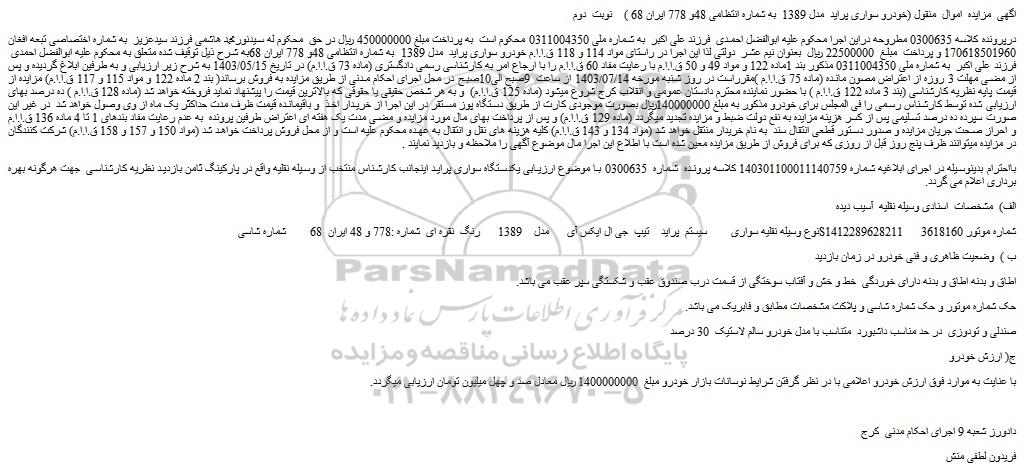 اگهی مزایده اموال منقول (خودرو سواری پراید مدل 1389 به شماره انتظامی 48و 778 ایران 68 ) نوبت دوم
درپرونده کلاسه 0300635 مطروحه دراین اجرا محکوم علیه ابوالفضل احمدی فرزند علی اکبر به شماره ملی 0311004350 محکوم است به پرداخت مبلغ 450000000 ریال در حق محکوم له سیدنورمحمد هاشمی فرزند سیدعزیز به شماره اختصاصی تبعه افغان
170618501960 و پرداخت مبلغ 22500000 ریال بعنوان نیم عشر دولتی لذا این اجرا در راستای مواد 114 و 118 ق.ا.ا.م خودرو سواری پراید مدل 1389 به شماره انتظامی 48و 778 ایران 68به شرح ذیل توقیف شده متعلق به محکوم علیه ابوالفضل احمدی
فرزند علی اکبر به شماره ملی 0311004350 مذکور بند 1ماده 122 و مواد 49 و 50 ق.ا.ا.م با رعایت مفاد 60 ق.ا.ا.م را با ارجاع امر به کارشناسی رسمی دادگستری (ماده 73 ق.ا.ا.م) در تاریخ 1403/05/15 به شرح زیر ارزیابی و به طرفین ابلاغ گردیده و پس
از مضی مهلت 3 روزه از اعتراض مصون مانده (ماده 75 ق.ا.ا.م )مقرراست در روز شنبه مورخه 1403/07/14 از ساعت 9صبح الی10صبح در محل اجرای احکام مدنی از طریق مزایده به فروش برساند( بند 2 ماده 122 و مواد 115 و 117 ق.ا.ا.م) مزایده از
قیمت پایه نظریه کارشناسی (بند 3 ماده 122 ق.ا.ا.م ) با حضور نماینده محترم دادستان عمومی و انقلاب کرج شروع میشود (ماده 125 ق.ا.ا.م) و به هر شخص حقیقی یا حقوقی که بالاترین قیمت را پیشنهاد نماید فروخته خواهد شد (ماده 128 ق.ا.ا.م ) ده درصد بهای
ارزیابی شده توسط کارشناس رسمی را فی المجلس برای خودرو مذکور به مبلغ 140000000ریال بصورت موجودی کارت از طریق دستگاه پوز مستقر در این اجرا از خریدار اخذ و باقیمانده قیمت ظرف مدت حداکثر یک ماه از وی وصول خواهد شد در غیر این
صورت سپرده ده درصد تسلیمی پس از کسر هزینه مزایده به نفع دولت ضبط و مزایده تجدید میگردد (ماده 129 ق.ا.ا.م) و پس از پرداخت بهای مال مورد مزایده و مضی مدت یک هفته ای اعتراض طرفین پرونده به عدم رعایت مفاد بندهای 1 تا 4 ماده 136 ق.ا.ا.م
و احراز صحت جریان مزایده و صدور دستور قطعی انتقال سند به نام خریدار منتقل خواهد شد (مواد 134 و 143 ق.ا.ا.م) کلیه هزینه های نقل و انتقال به عهده محکوم علیه است و از محل فروش پرداخت خواهد شد (مواد 150 و 157 و 158 ق.ا.ا.م) شرکت کنندگان
در مزایده میتوانند ظرف پنج روز قبل از روزی که برای فروش از طریق مزایده معین شده است با اطلاع این اجرا مال موضوع آگهی را ملاحظه و بازدید نمایند .
بااحترام بدینوسیله در اجرای ابلاغیه شماره 140301100011140759 کلاسه پرونده شماره 0300635 با موضوع ارزیابی یکدستگاه سواری پراید اینجانب کارشناس منتخب از وسیله نقلیه واقع در پارکینگ ثامن بازدید نظریه کارشناسی جهت هرگونه بهره
برداری اعلام می گردد.
الف) مشخصات اسنادی وسیله نقلیه آسیب دیده
شماره موتور 3618160 S1412289628211نوع وسیله نقلیه سواری سیستم پراید تیپ جی ال ایکس آی مدل 1389 رنگ نقره ای شماره :778 و 48 ایران 68 شماره شاسی
ب ) وضعیت ظاهری و فنی خودرو در زمان بازدید
اطاق و بدنه اطاق و بدنه دارای خوردگی خط و خش و آفتاب سوختگی از قسمت درب صندوق عقب و شکستگی سپر عقب می باشد.
حک شماره موتور و حک شماره شاسی و پلاکت مشخصات مطابق و فابریک می باشد.
صندلی و تودوزی در حد مناسب داشبورد متناسب با مدل خودرو سالم لاستیک 30 درصد
ج( ارزش خودرو
با عنایت به موارد فوق ارزش خودرو اعلامی با در نظر گرفتن شرایط نوسانات بازار خودرو مبلغ 1400000000 ریال معادل صد و چهل میلیون تومان ارزیابی میگردد.
دادورز شعبه 9 اجرای احکام مدنی کرج
فریدون لطفی منش
ParsNamadData
مرکز فرآوری اطلاعات پارس نماد داده ها
پایگاه اطلاع رسانی مناقصه و مزایده
۰۲۱-۸۸۳۴۹۶۷۰-۵